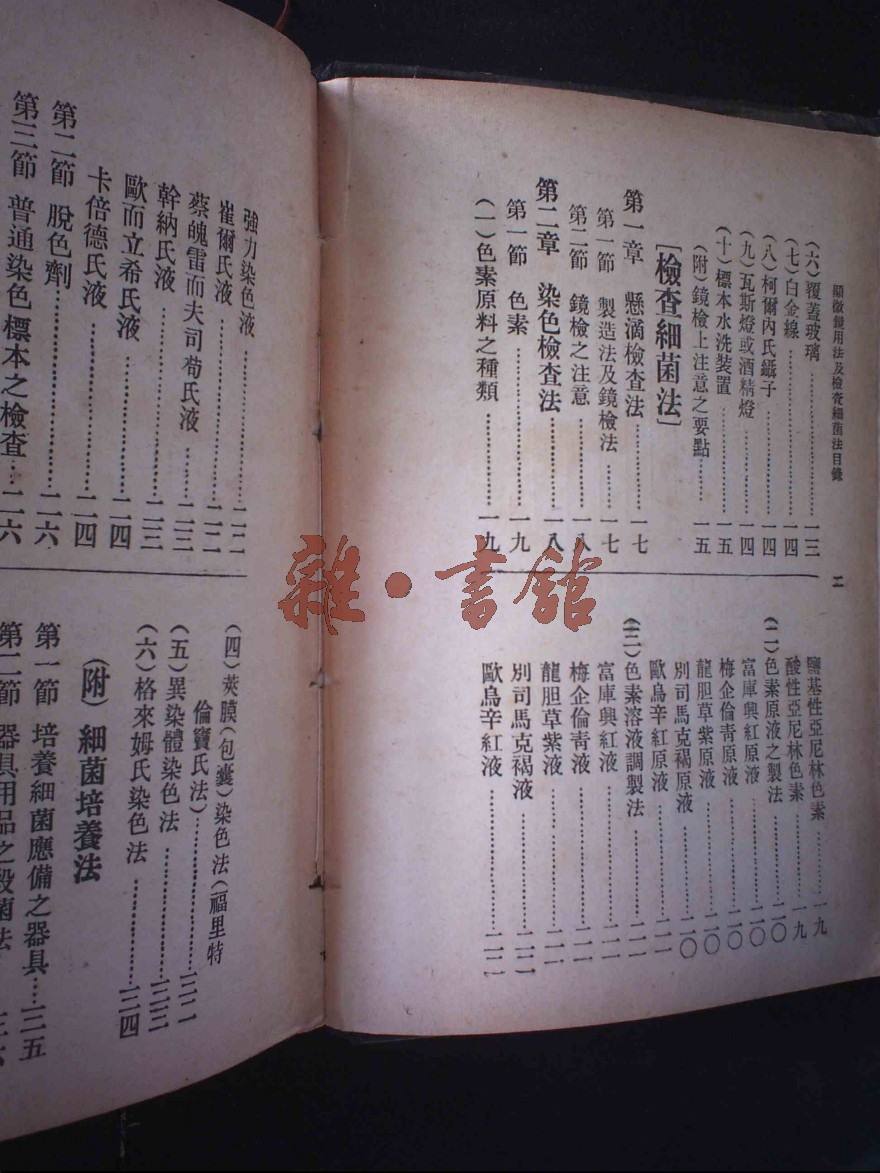 顯微鏡用法及檢查細菌法目錄
二
(六)覆蓋玻璃……一三
(七)白金線……一四
(八)柯爾內氏鑷子……一四
(九)瓦斯燈或酒精燈……一四
(十)標本水洗裝置……一五
(附)鏡檢上注意之要點……一五
[檢查細菌法]
第一章 懸滴檢查法……一七
第一節 製造法及鏡檢法……一七
第二節 鏡檢之注意……一八
第二章 染色檢查法……一八
第一節 色素……一九
(一)色素原料之種類……一九
鹽基性亞尼林色素……一九
酸性亞尼林色素……一九
(二)色素原液之製法……二〇
富庫興紅原液……二〇
梅企倫青原液……二〇
龍胆草紫原液……二〇
別司馬克褐原液……二〇
歐烏辛紅原液……二一
(三)色素溶液調製法……二一
富庫興紅液……二一
梅企倫青液……二一
龍胆草紫液……二一
別司馬克褐液……二二
歐烏辛紅液……二二
強力染色液……二二
崔爾氏液……二二
蔡魄雷而夫司荀氏液……二三
幹納氏液……二三
歐而立希氏液……二四
卡倍德氏液……二四
第二節 脫色劑……二六
第三節 普通染色標本之檢查…二六
(四)莢膜(包囊)染色法(福里特
倫寶氏法)……三二
(五)異染體染色法……三三
(六)格來姆氏染色法……三四
(附)細菌培養法
第一節 培養細菌應備之器具…三五
第二節 器具用品之殺菌法…三六
雜·書館